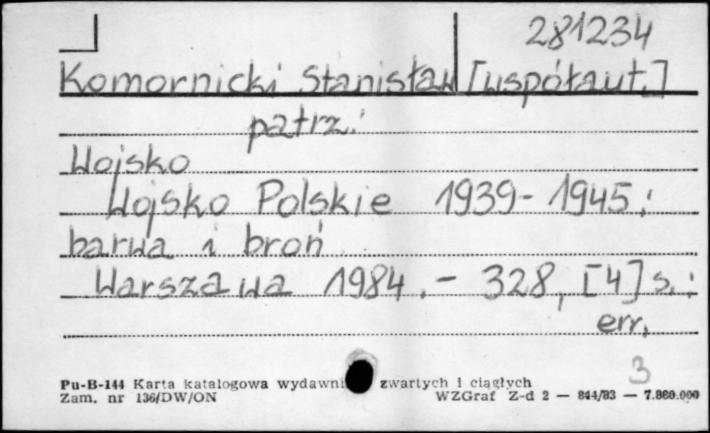 281234
Komornicki Stanisław [współaut.]
patrz:
Wojsko
Wojsko Polskie 1939-1945:
barwa i broń
Warszawa 1984. - 328, [4] s. :
err.
3
Pu-B-144 Karta katalogowa wydawni zwartych i ciągłych
Zam. nr 136/DW/ON WZGraf Z-d 2 — 844/83 — 7.880.000